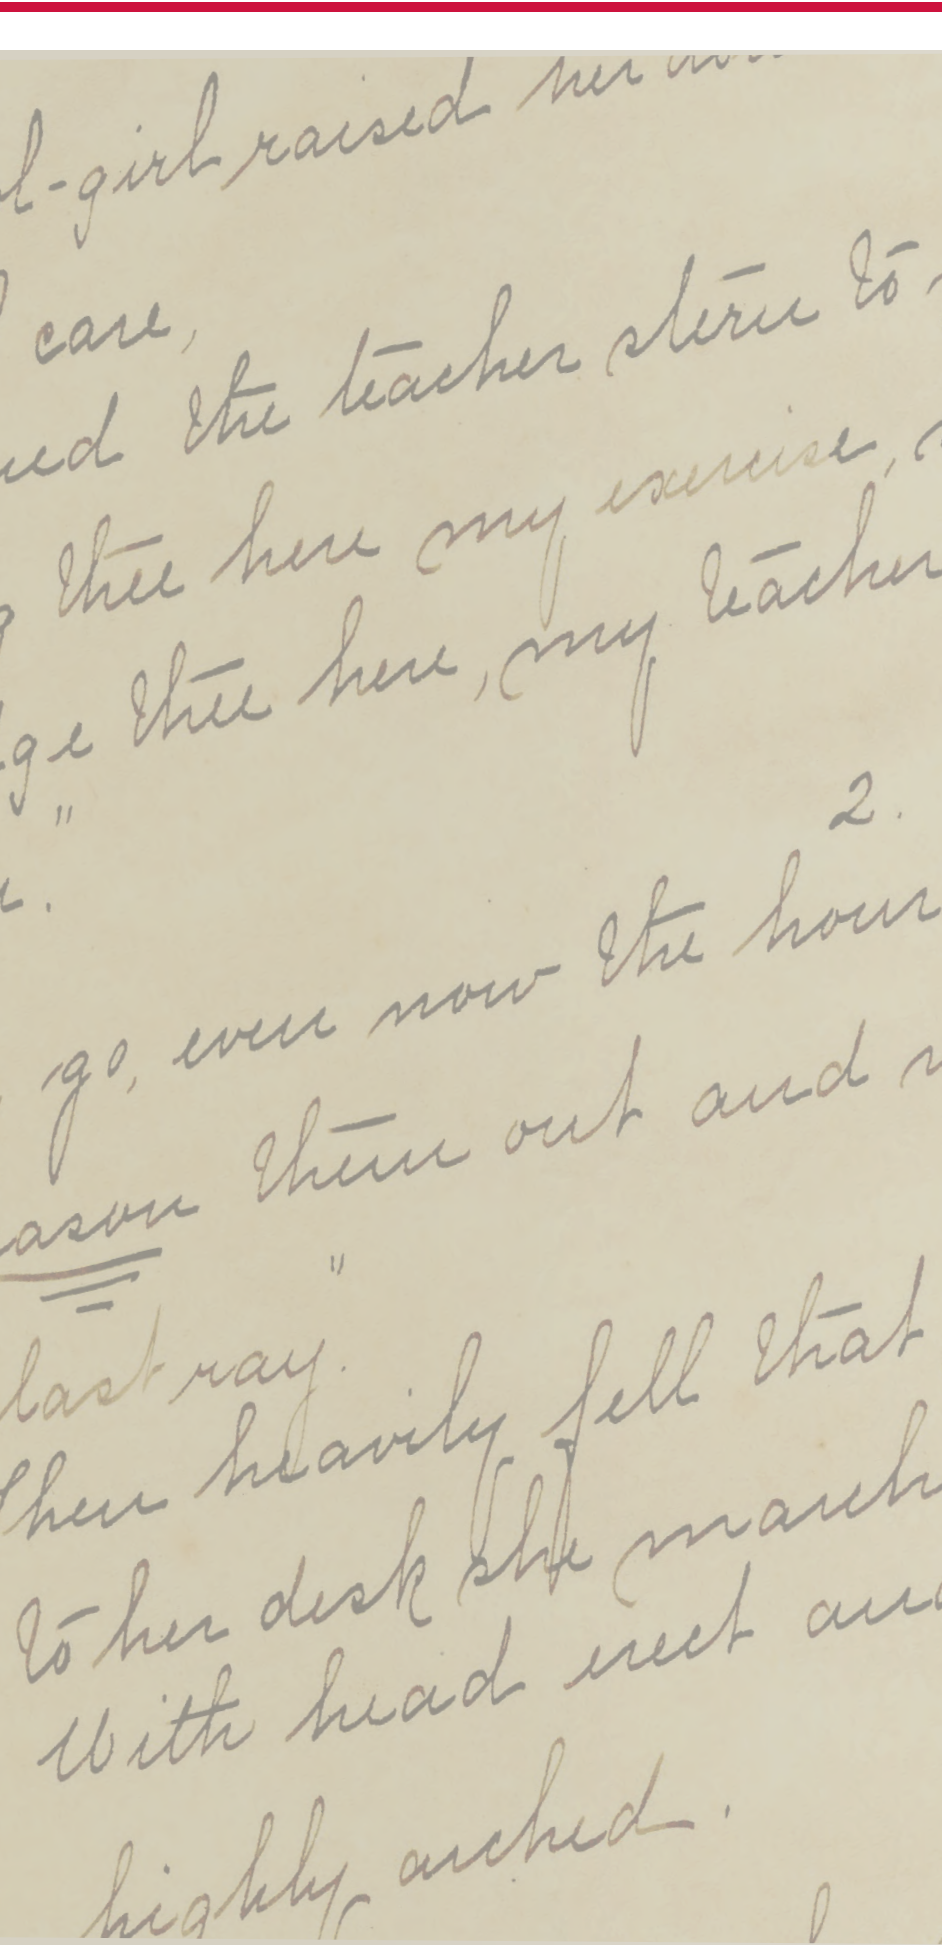 l-girl raised her
care,
the teacher stern to
thee here my exercise,
ge thee here, my teacher
"
2.
go, even now the hour
ason them out and
"
last ray.
Then heavily fell that
To her desk she march
With head erect and
highly arched.